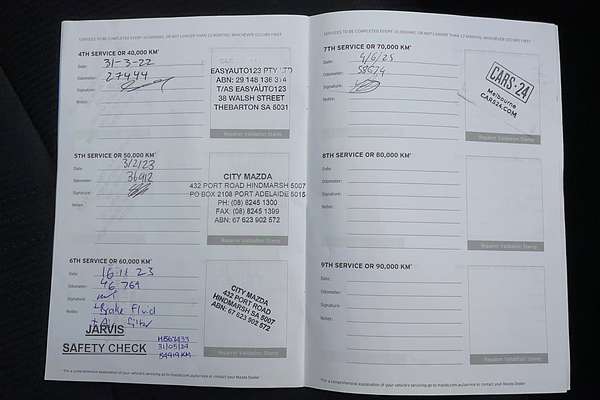 SERVICES TO BE COMPLETED EVERY 10,000KMS, OR NOT LONGER THAN 12 MONTHS, WHICHEVER OCCURS FIRST
4TH SERVICE OR 40,000 KM*
Date: 31-3-22
Odometer: 27444
Signature:
Notes:
EASYAUTO123 PTY LTD
ABN: 29 148 136 314
T/AS EASYAUTO123
38 WALSH STREET
THEBARTON SA 5031
Repairer Validation Stamp
5TH SERVICE OR 50,000 KM*
Date: 3/2/23
Odometer: 36912
Signature:
Notes:
CITY MAZDA
432 PORT ROAD HINDMARSH 5007
PO BOX 2108 PORT ADELAIDE 5015
PH: (08) 8245 1300
FAX: (08) 8245 1399
ABN: 67 623 902 572
Repairer Validation Stamp
6TH SERVICE OR 60,000 KM*
Date: 16 11 23
Odometer: 46 769
Signature:
Notes: Brake Fluid
+ Air filter
JARVIS
SAFETY CHECK
31/05/24
54919KM
CITY MAZDA
432 PORT ROAD
HINDMARSH SA 5007
ABN: 67 623 902 572
Repairer Validation Stamp
*For a comprehensive explanation of your vehicle's servicing go to mazda.com.au/service or contact your Mazda Dealer
SERVICES TO BE COMPLETED EVERY 10,000KMS, OR NOT LONGER THAN 12 MONTHS, WHICHEVER OCCURS FIRST
7TH SERVICE OR 70,000 KM*
Date: 4/6/25
Odometer:
Signature:
Notes:
CARS·24
Melbourne
CARS24.COM
Repairer Validation Stamp
8TH SERVICE OR 80,000 KM*
Date:
Odometer:
Signature:
Notes:
Repairer Validation Stamp
9TH SERVICE OR 90,000 KM*
Date:
Odometer:
Signature:
Notes:
Repairer Validation Stamp
*For a comprehensive explanation of your vehicle's servicing go to mazda.com.au/service or contact your Mazda Dealer